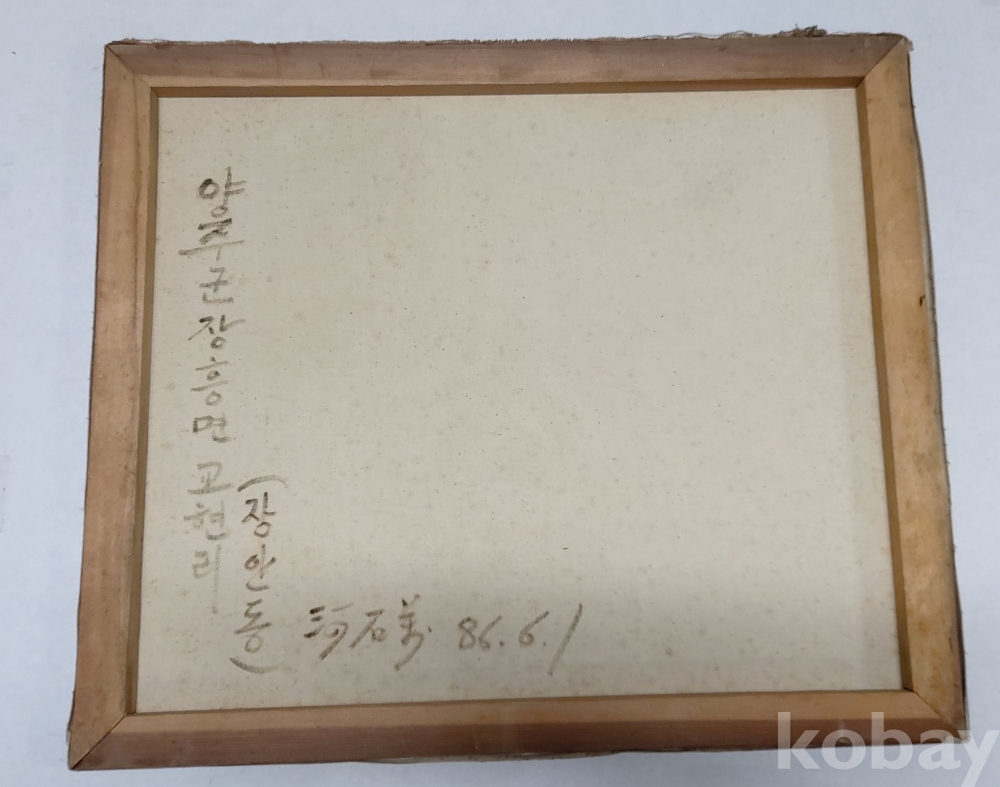 양주군장흥면 교현리
(장안동)
河石 86. 6. 1
kobay